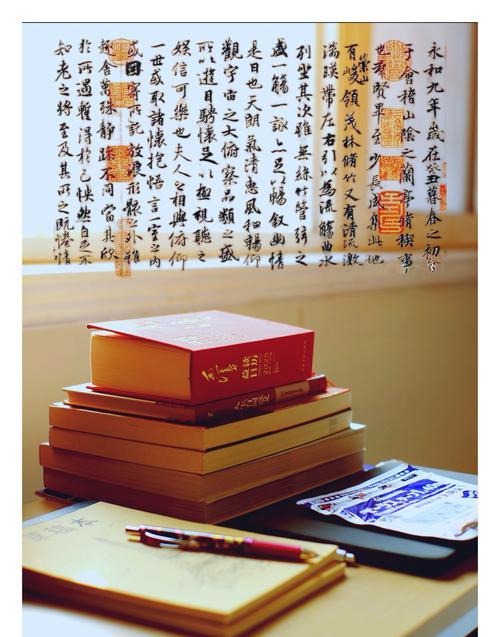 永和九年歲在癸丑暮春之初會
于會稽山陰之蘭亭脩稧事
也羣賢畢至少長咸集此地
有崇山峻領茂林脩竹又有清流激
湍暎帶左右引以為流觴曲水
列坐其次雖無絲竹管弦之
盛一觴一詠亦足以暢叙幽情
是日也天朗氣清惠風和暢仰
觀宇宙之大俯察品類之盛
所以遊目騁懷足以極視聽之
娛信可樂也夫人之相與俯仰
一世或取諸懷抱悟言一室之內
或因寄所託放浪形骸之外雖
趣舍萬殊靜躁不同當其欣
於所遇暫得於己怏然自足不
知老之將至及其所之既惓情
益读
日历
2025